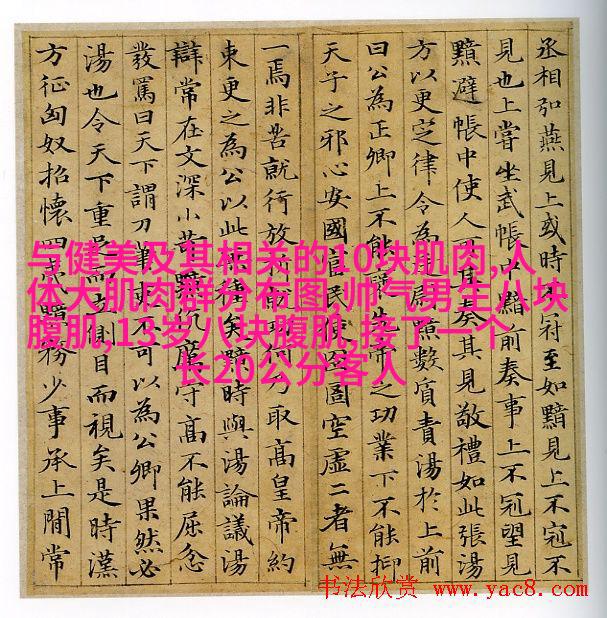 丞相弘燕見上或時冠至如黯見上不冠不
見也上嘗坐武帳中黯前奏事上不冠望見
黯避帳中使人可其奏其見敬禮如此張湯
方以更定律令為廷尉黯數質責湯於上前
曰公為正卿上不能褒先帝之功業下不能抑
天子之邪心安國富民使囹圄空虛二者無
一焉非苦就行放析就功何乃取高皇帝約
束更之為公以此無種矣黯時與湯論議湯
辯常在文深小苛黯伉厲守高不能屈忿
發罵曰天下謂刀筆吏不可以為公卿果然必
湯也令天下重足而立側目而視矣是時漢
方征匈奴招懷四夷黯務少事承上間常
与健美及其相关的10块肌肉,人
体大肌肉群分布图,帅气男生八块
腹肌,13岁八块腹肌,接了一个
长20公分客人
书法欣赏 www.yac8.com